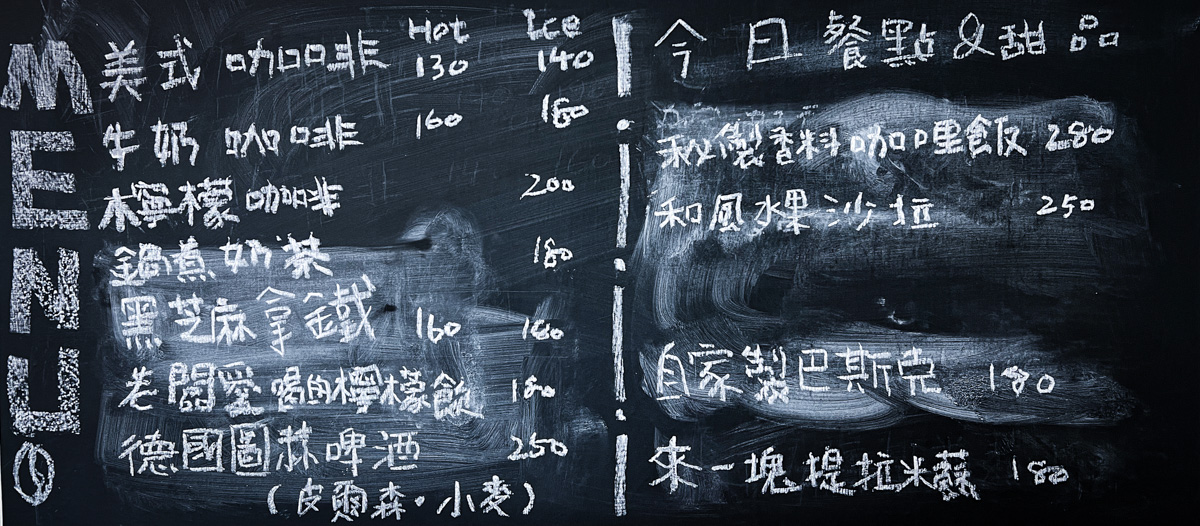 MENU
Hot Ice
美式咖啡 130 140
牛奶咖啡 160 180
檸檬咖啡 200
鍋煮奶茶 180
黑芝麻拿鐵 160 180
老闆愛喝的檸檬飲 180
德國圖菻啤酒 250
(皮爾森·小麥)
今日餐點&甜品
秘製香料咖哩飯 280
和風水果沙拉 250
自家製巴斯克 180
來一塊提拉米蘇 180